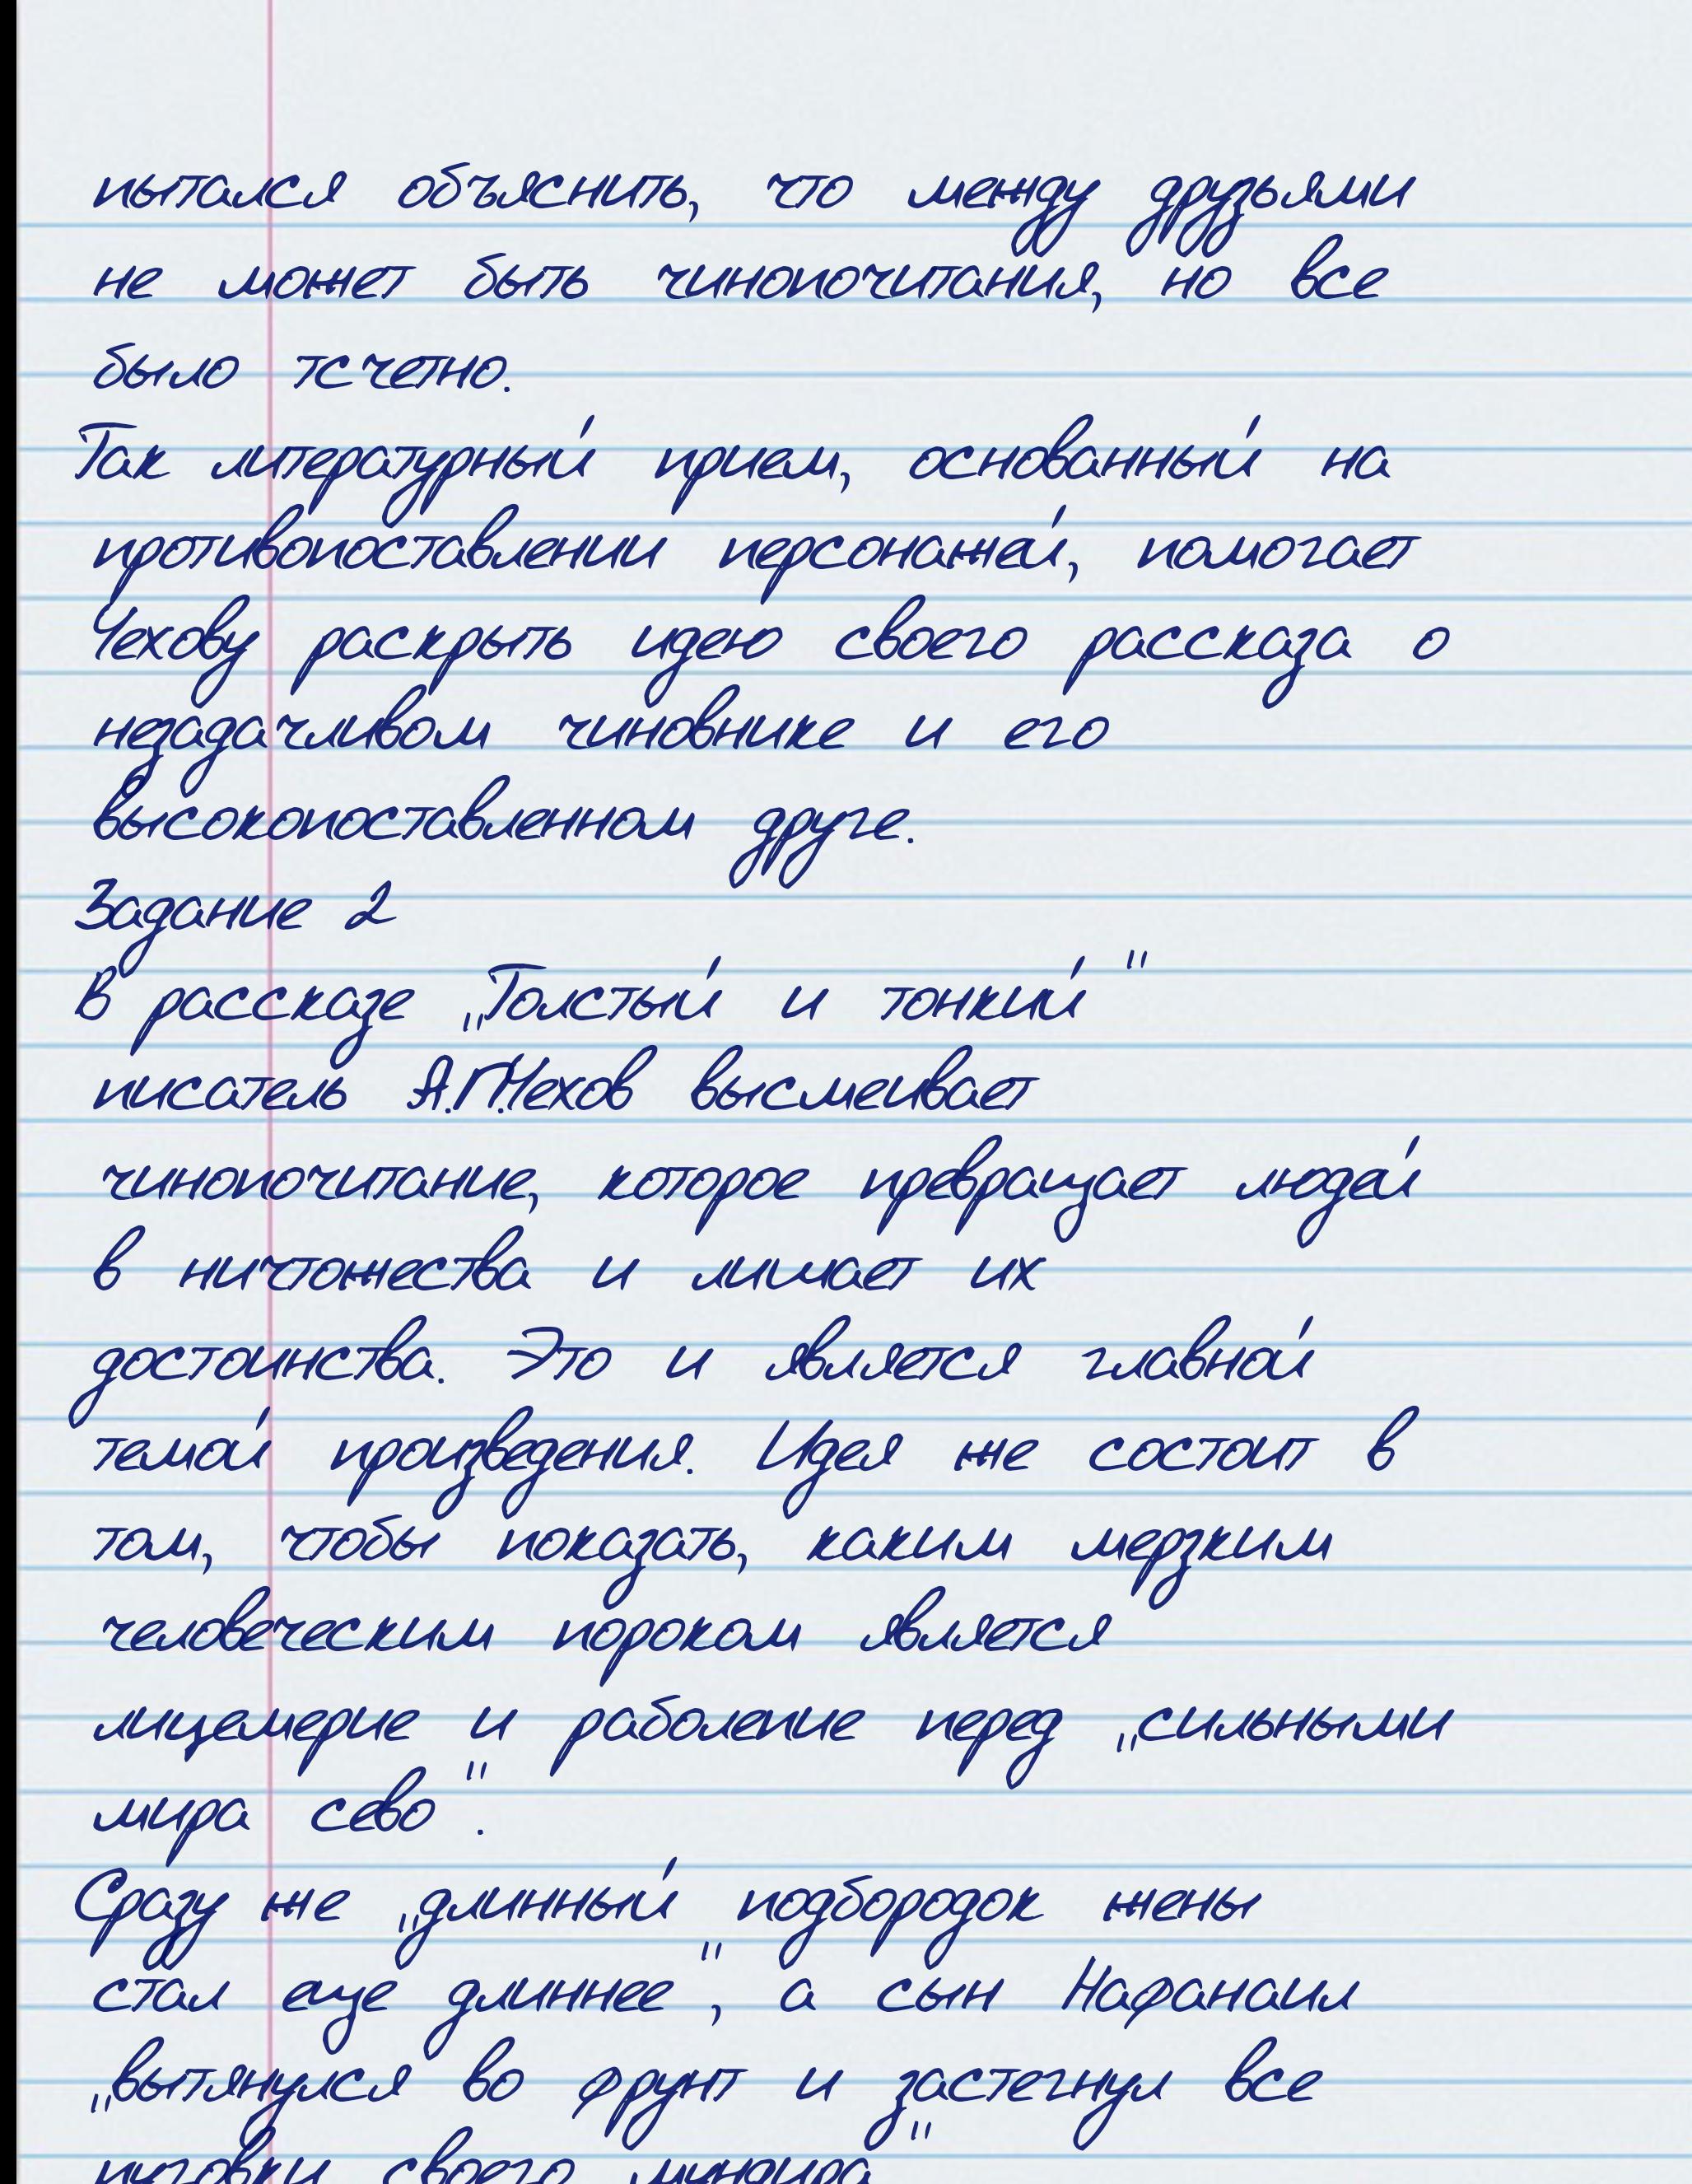 пытался объяснить, что между друзьями
не может быть чинопочитания, но все
было тсчетно.
Так литературный прием, основанный на
противопоставлении персонажей, помогает
Чехову раскрыть идею своего рассказа о
незадачливом чиновнике и его
высокопоставленном друге.
Задание 2
В рассказе „Толстый и тонкий"
писатель А.П.Чехов высмеивает
чинопочитание, которое превращает людей
в ничтожества и лишает их
достоинства. Это и является главной
темой произведения. Идея же состоит в
том, чтобы показать, каким мерзким
человеческим пороком является
лицемерие и раболепие перед „сильными
мира сево".
Сразу же „длинный подбородок жены
стал еще длиннее", а сын Нафанаил
„вытянулся во фрунт и застегнул все
пуговки своего мундира"